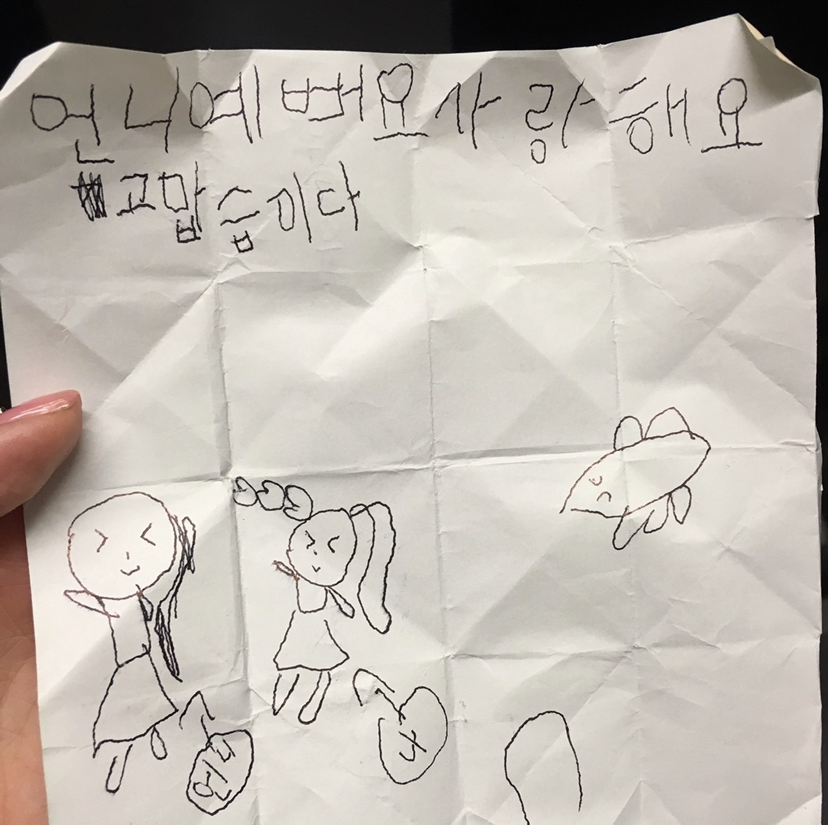 언니예뻐요사랑해요
고맙습이다
나